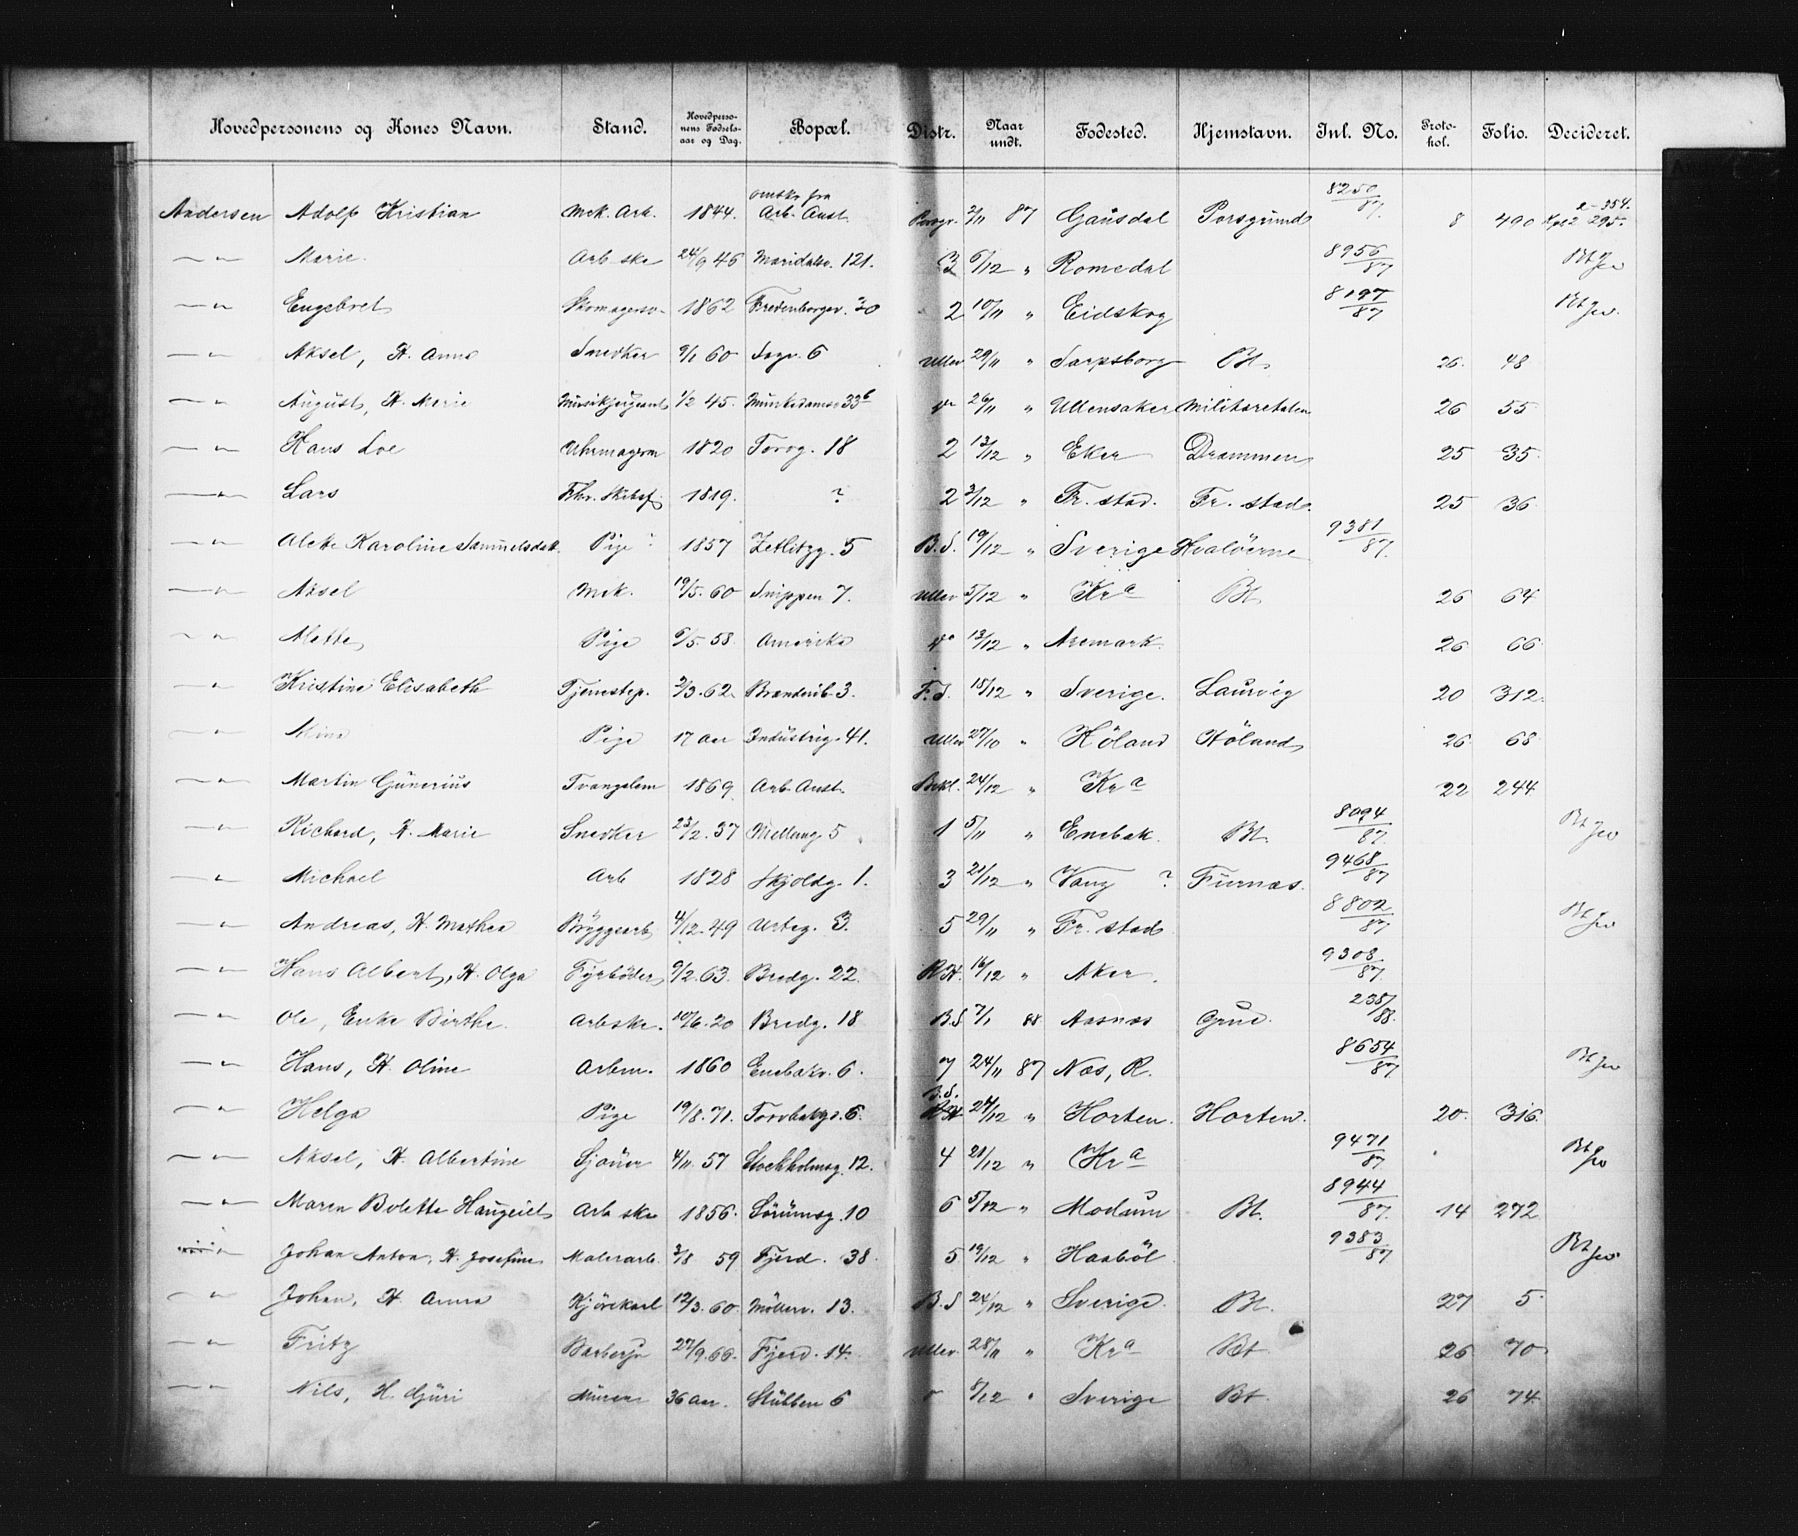 Hovedpersonens og Kones Navn. Stand. Hovedpersonens Fødselsaar og Dag. Bopæl. Distr. Naar undt. Fødested. Hjemstavn. Inl. No. Protokol. Folio. Decideret.
Andersen Adolf Kristian Mek. Arb. 1844. omsk. fra Arb. Anst. Porsgr. 2/11 87 Gausdal Porsgrund 8250/87. 8 490 2-354. 295.
— " — Marie. Arb ske 24/9 46 Maridalsv. 121. 3 6/12 " Romedal 8956/87
— " — Engebret Skomagersv. 1862 Fredenborgv. 30 2 10/11 " Eidskog 8197/87
— " — Aksel, H. Anna Snedker 9/1 60 Sagv. 6 Ullev 29/11 " Sarpsborg Bt. 26. 48
— " — August, H. Marie Musikjsergeant 1/2 45. Munkedamsv 33 b 26/11 " Ullensaker Militæretaten 26 55
— " — Hans Loe Uhrmagerm 1820 Torvg. 18 2 13/12 " Eker Drammen 25 35
— " — Lars Fhv. Skibsf. 1819. ? 2 3/12 " Fr. stad. Fr. stad. 25 36
— " — Alette Karoline Samuelsdat. Pige ? 1857 Zetlitzg. 5 B. S. 19/12 " Sverige Hvaløerne 9381/87.
— " — Aksel Mek. 19/5. 60 Snippen 7. Ullev 5/12 " Kr a Bt 26 64
— " — Mette Pige 6/5. 58. Amerika 13/12 " Aremark. 26 66.
— " — Kristine Elisabeth Tjenestep. 2/3. 62. Branderib. 3. F. S. 15/12 " Sverige. Laurvig 20 312.
— " — Mina Pige 17 Aar Industrig. 41. Ullev 27/10 " Høland Høland 26. 68
— " — Martin Gunerius Tvangslem 1869. Arb. Anst. Bekl. 24/12 " Kr a 22 244
— " — Richard, H. Marie Snedker 23/2. 37 Mellemg. 5 1 5/11 " Enebak. Bt. 8094/87.
— " — Michael Arb 1828 Skjoldg. 1. 3 21/12 " Vang ? Furnæs. 9468/87
— " — Andreas, H. Mathea Bryggearb 4/12. 49 Urteg. 3. 5 29/11 " Fr. stad 8802/87
— " — Hans Albert, H. Olga Fyrbøder 9/2. 63. Bredg. 22. R.H. 16/12 " Aker. 9308/87.
— " — Ole, Enke Birthe. Arbske. 10/6. 20 Bredg. 18 B. S 7/1 88 Aasnæs Grue. 235/88.
— " — Hans, H. Oline Arbm. 1860 Enebakv. 6. 7 24/11 87 Næs, R. 8654/87
— " — Helga Pige 19/8. 71. Torvbakg. 6. B. S. 24/12 " Horten. Horten. 20. 316.
— " — Aksel, H. Albertine Sjøuer 4/11 57 Stockholmsg. 12. 4 21/12 " Kr a 9471/87
— " — Maren Bolette Haugeiet Arb ske 1856. Sørumsg. 10 6 5/12 " Modum Bt. 8944/87. 14 272
— " — Johan Anton, H. Josefine Malerarb. 3/8 59 Fjerd. 38. 5 19/12 " Haabøl 9383/87.
— " — Johan, H. Anna Kjørekarl 12/3. 60. Møllerv. 13. B. S 24/12 " Sverige. Bt. 27 5
— " — Fritz Barbersv 27/9. 66. Fjerd. 14. Ullev. 28/11 " Kr a Bt 26 70
— " — Nils, H. Guri Murer 36 Aar. Stubben 6 " 8/12 " Sverige Bt. 26 74.